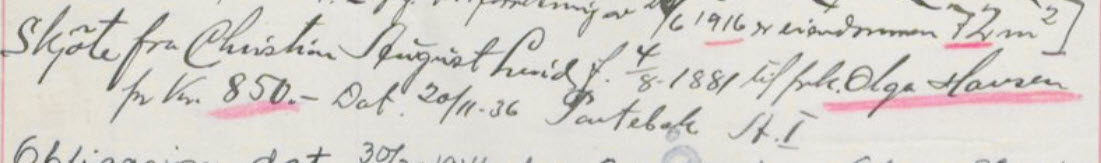 /6 1916 er eiendommen 72 m²]
Skjøte fra Christian August Lund f. 4/8-1881 til frk. Olga Hansen
for Kr. 850.- Dat. 20/11-36 Pantebok St. I
Obligasjon dat 30/